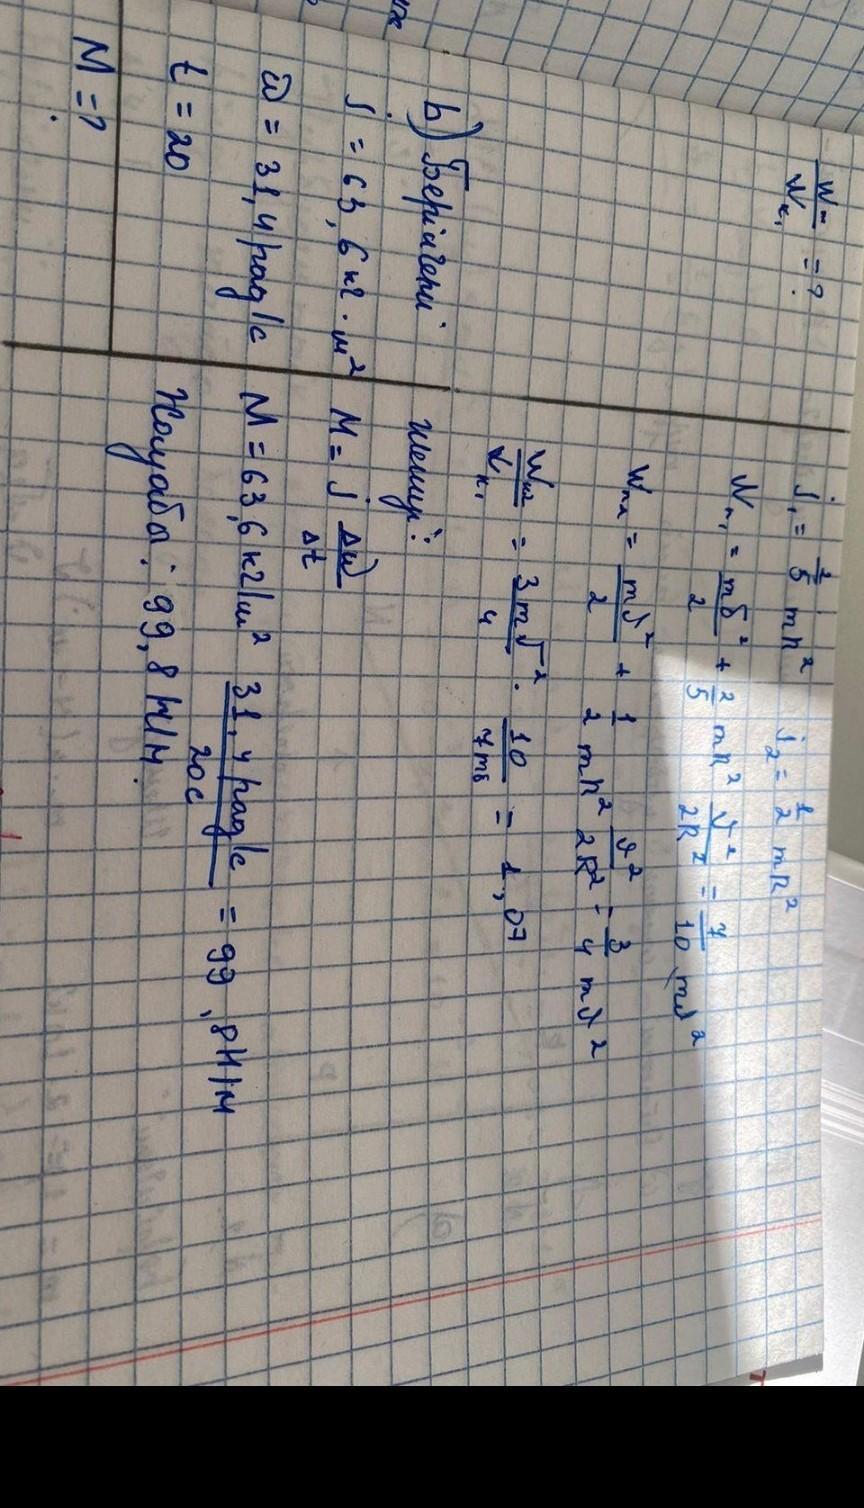 W₂/Wₖ₁ = ?
j₁ = 2/5 mR² j₂ = 1/2 mR²
Wₖ₁ = mϑ²/2 + 2/5 mR² ϑ²/2R² = 7/10 mϑ²
Wₖ₂ = mϑ²/2 + 1/2 mR² ϑ²/2R² = 3/4 mϑ²
Wₖ₂/Wₖ₁ = 3mϑ²/4 · 10/7mϑ = 1,07
b) Берілгені
j = 63,6 кг·м²
ω = 31,4 рад/с
t = 20
M = ?
Шешуі:
M = j Δω/Δt
M = 63,6 кг/м² 31,4 рад/с / 20с = 99,8 Н/м
Жауабы: 99,8 Н/м.